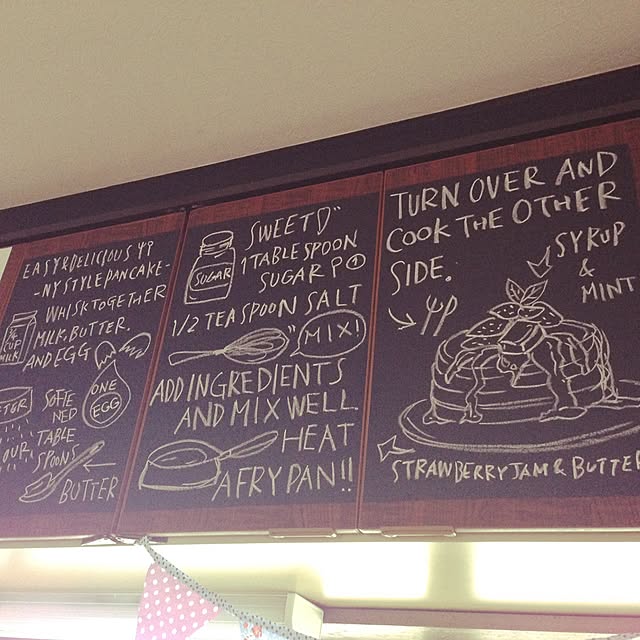 EASY & DELICIOUS
-NY STYLE PANCAKE-
WHISK TOGETHER
MILK, BUTTER.
AND EGG
CUP
MILK
ONE
EGG
SOFTE
NED
TABLE
SPOONS
BUTTER
SWEET
1 TABLE SPOON
SUGAR
SUGAR
1/2 TEA SPOON SALT
"MIX!
ADD INGREDIENTS
AND MIX WELL.
HEAT
A FRY PAN!!
TURN OVER AND
COOK THE OTHER
SIDE.
SYRUP
&
MINT
STRAWBERRY JAM & BUTTER